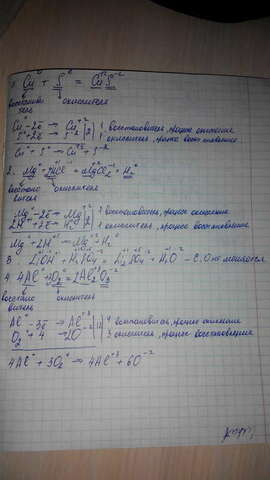 1. Cu⁰ + S⁰ = Cu⁺²S⁻²
восстанови окислитель
тель
Cu⁰ - 2ē → Cu⁺² | 2 | 1 восстановитель, процесс окисление
S⁰ + 2ē → S⁻² | 2 | 1 окислитель, процесс восстановление
Cu⁰ + S⁰ → Cu⁺² + S⁻²
2. Mg⁰ + 2HCl = MgCl₂ + H₂⁰
восстано окислитель
витель
Mg⁰ - 2ē → Mg⁺² | 2 | 1 восстановитель, процесс окисление
2H⁺ + 2ē → H₂⁰ | 2 | 1 окислитель, процесс восстановление
Mg⁰ + 2H⁺ → Mg⁺² + H₂⁰
3. LiOH + H₂SO₄ = Li₂SO₄ + H₂O - С.О не меняются.
4. 4Al⁰ + 3O₂⁰ = 2Al₂⁺³O₃⁻²
восстано окислитель
витель
Al⁰ - 3ē → Al⁺³ | 3 | 4 восстановитель, процесс окисление
O₂⁰ + 4 → 2O⁻² | 4 | 3 окислитель, процесс восстановление
4Al⁰ + 3O₂⁰ → 4Al⁺³ + 6O⁻²